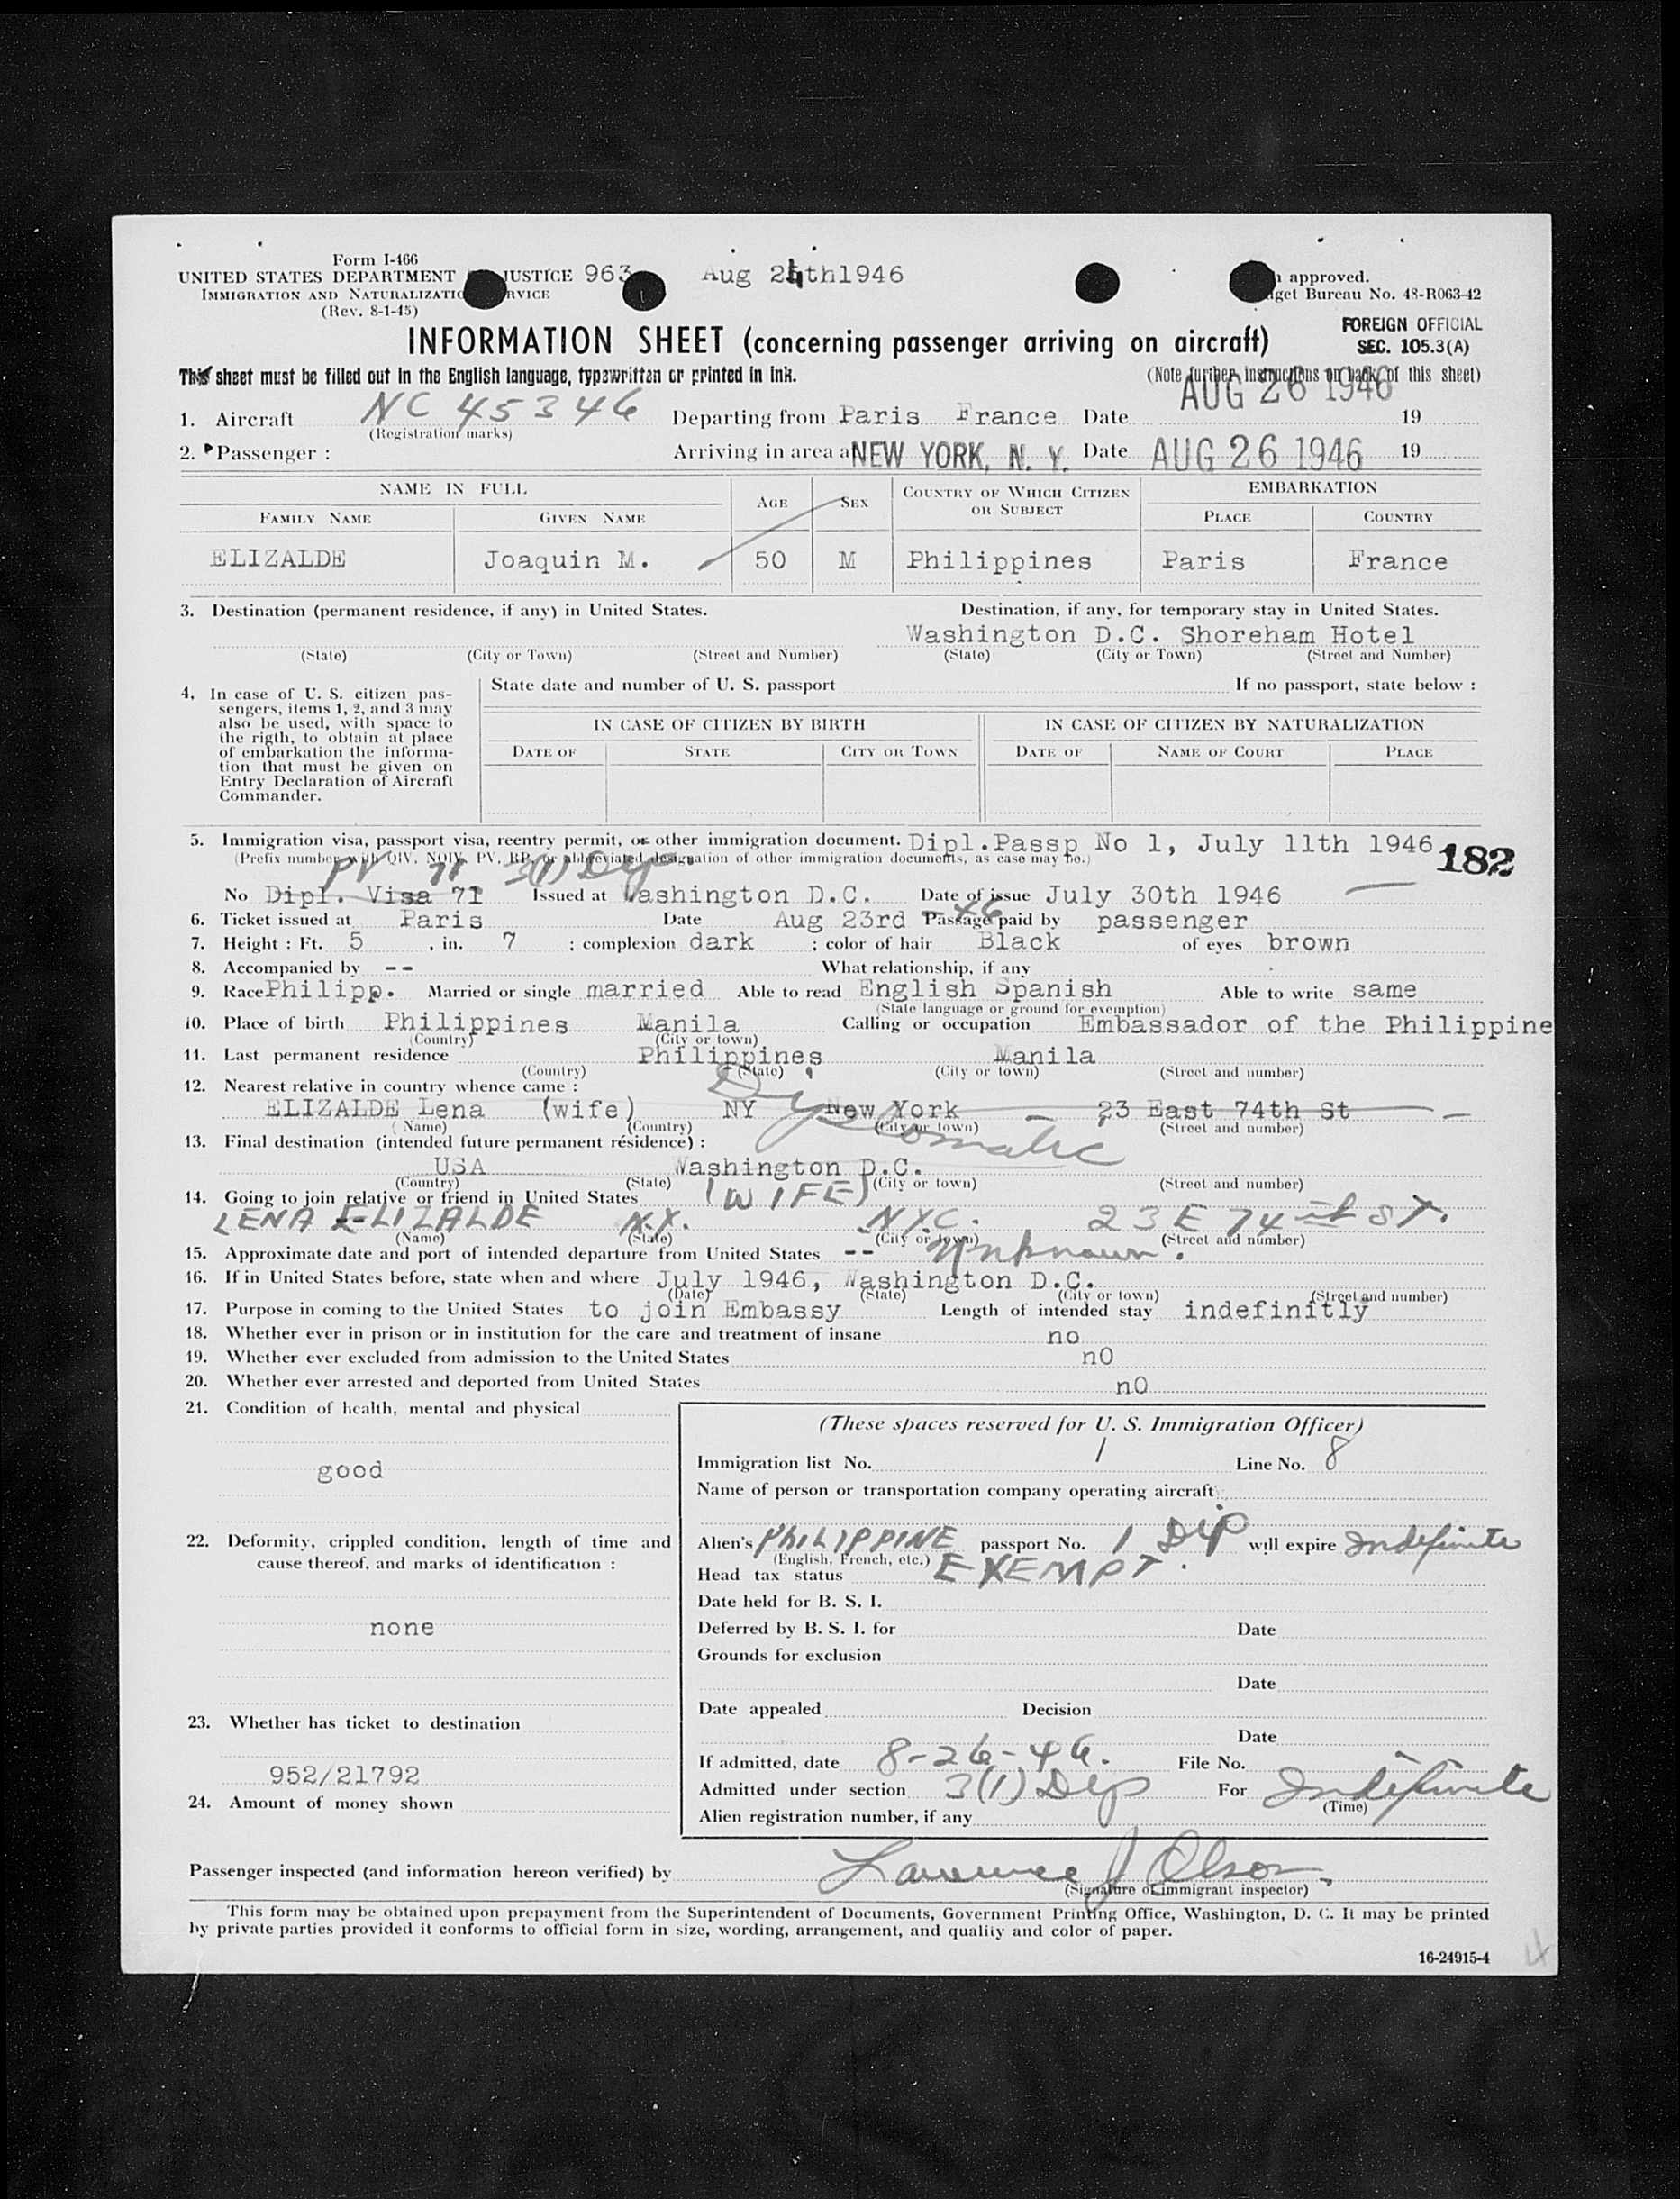 Form I-466
UNITED STATES DEPARTMENT JUSTICE 963 Aug 24th1946 approved.
IMMIGRATION AND NATURALIZATIO RVICE get Bureau No. 43-R063-42
(Rev. 8-1-45)
FOREIGN OFFICIAL
SEC. 105.3(A)
INFORMATION SHEET (concerning passenger arriving on aircraft)
This sheet must be filled out in the English language, typewritten or printed in ink. (Note further instructions on back of this sheet)
AUG 26 1946
1. Aircraft NC 45346 Departing from Paris France Date 19
(Registration marks)
2. Passenger : Arriving in area a NEW YORK, N. Y. Date AUG 26 1946 19
NAME IN FULL AGE SEX COUNTRY OF WHICH CITIZEN OR SUBJECT EMBARKATION
FAMILY NAME GIVEN NAME PLACE COUNTRY
ELIZALDE Joaquin M. 50 M Philippines Paris France
3. Destination (permanent residence, if any) in United States. Destination, if any, for temporary stay in United States.
Washington D.C. Shoreham Hotel
(State) (City or Town) (Street and Number) (State) (City or Town) (Street and Number)
4. In case of U. S. citizen pas-
sengers, items 1, 2, and 3 may
also be used, with space to
the rigth, to obtain at place
of embarkation the informa-
tion that must be given on
Entry Declaration of Aircraft
Commander.
State date and number of U. S. passport If no passport, state below :
IN CASE OF CITIZEN BY BIRTH IN CASE OF CITIZEN BY NATURALIZATION
DATE OF STATE CITY OR TOWN DATE OF NAME OF COURT PLACE
5. Immigration visa, passport visa, reentry permit, or other immigration document. Dipl.Passp No 1, July 11th 1946
(Prefix number with QIV, NQIV, PV, RP, or abbreviated designation of other immigration documents, as case may be.)
182
PV 71 3(1) Dip
No Dipl. Visa 71 Issued at Washington D.C. Date of issue July 30th 1946
6. Ticket issued at Paris Date Aug 23rd -46 Passage paid by passenger
7. Height : Ft. 5 , in. 7 ; complexion dark ; color of hair Black of eyes brown
8. Accompanied by -- What relationship, if any
9. Race Philipp. Married or single married Able to read English Spanish Able to write same
(State language or ground for exemption)
10. Place of birth Philippines Manila Calling or occupation Embassador of the Philippine
(Country) (City or town)
11. Last permanent residence Philippines Manila
(Country) (State) (City or town) (Street and number)
12. Nearest relative in country whence came :
Diplomatic
ELIZALDE Lena (wife) NY New York 23 East 74th St
(Name) (Country) (City or town) (Street and number)
13. Final destination (intended future permanent résidence) :
USA Washington D.C.
(Country) (State) (City or town) (Street and number)
14. Going to join relative or friend in United States (WIFE)
LENA ELIZALDE N.Y. N.Y.C. 23 E 74th ST.
(Name) (State) (City or town) (Street and number)
15. Approximate date and port of intended departure from United States -- Unknown.
16. If in United States before, state when and where July 1946, Washington D.C.
(Date) (State) (City or town) (Street and number)
17. Purpose in coming to the United States to join Embassy Length of intended stay indefinitly
18. Whether ever in prison or in institution for the care and treatment of insane no
19. Whether ever excluded from admission to the United States nO
20. Whether ever arrested and deported from United States nO
21. Condition of health, mental and physical
good
22. Deformity, crippled condition, length of time and
cause thereof, and marks of identification :
none
23. Whether has ticket to destination
952/21792
24. Amount of money shown
(These spaces reserved for U. S. Immigration Officer)
Immigration list No. 1 Line No. 8
Name of person or transportation company operating aircraft
Alien's PHILIPPINE passport No. 1 Dip will expire Indefinite
(English, French, etc.)
Head tax status EXEMPT.
Date held for B. S. I.
Deferred by B. S. I. for Date
Grounds for exclusion
Date
Date appealed Decision
Date
If admitted, date 8-26-46. File No.
Admitted under section 3(1) Dip For Indefinite
(Time)
Alien registration number, if any
Passenger inspected (and information hereon verified) by Lawrence J Olson
(Signature of immigrant inspector)
This form may be obtained upon prepayment from the Superintendent of Documents, Government Printing Office, Washington, D. C. It may be printed
by private parties provided it conforms to official form in size, wording, arrangement, and quality and color of paper.
16-24915-4
4